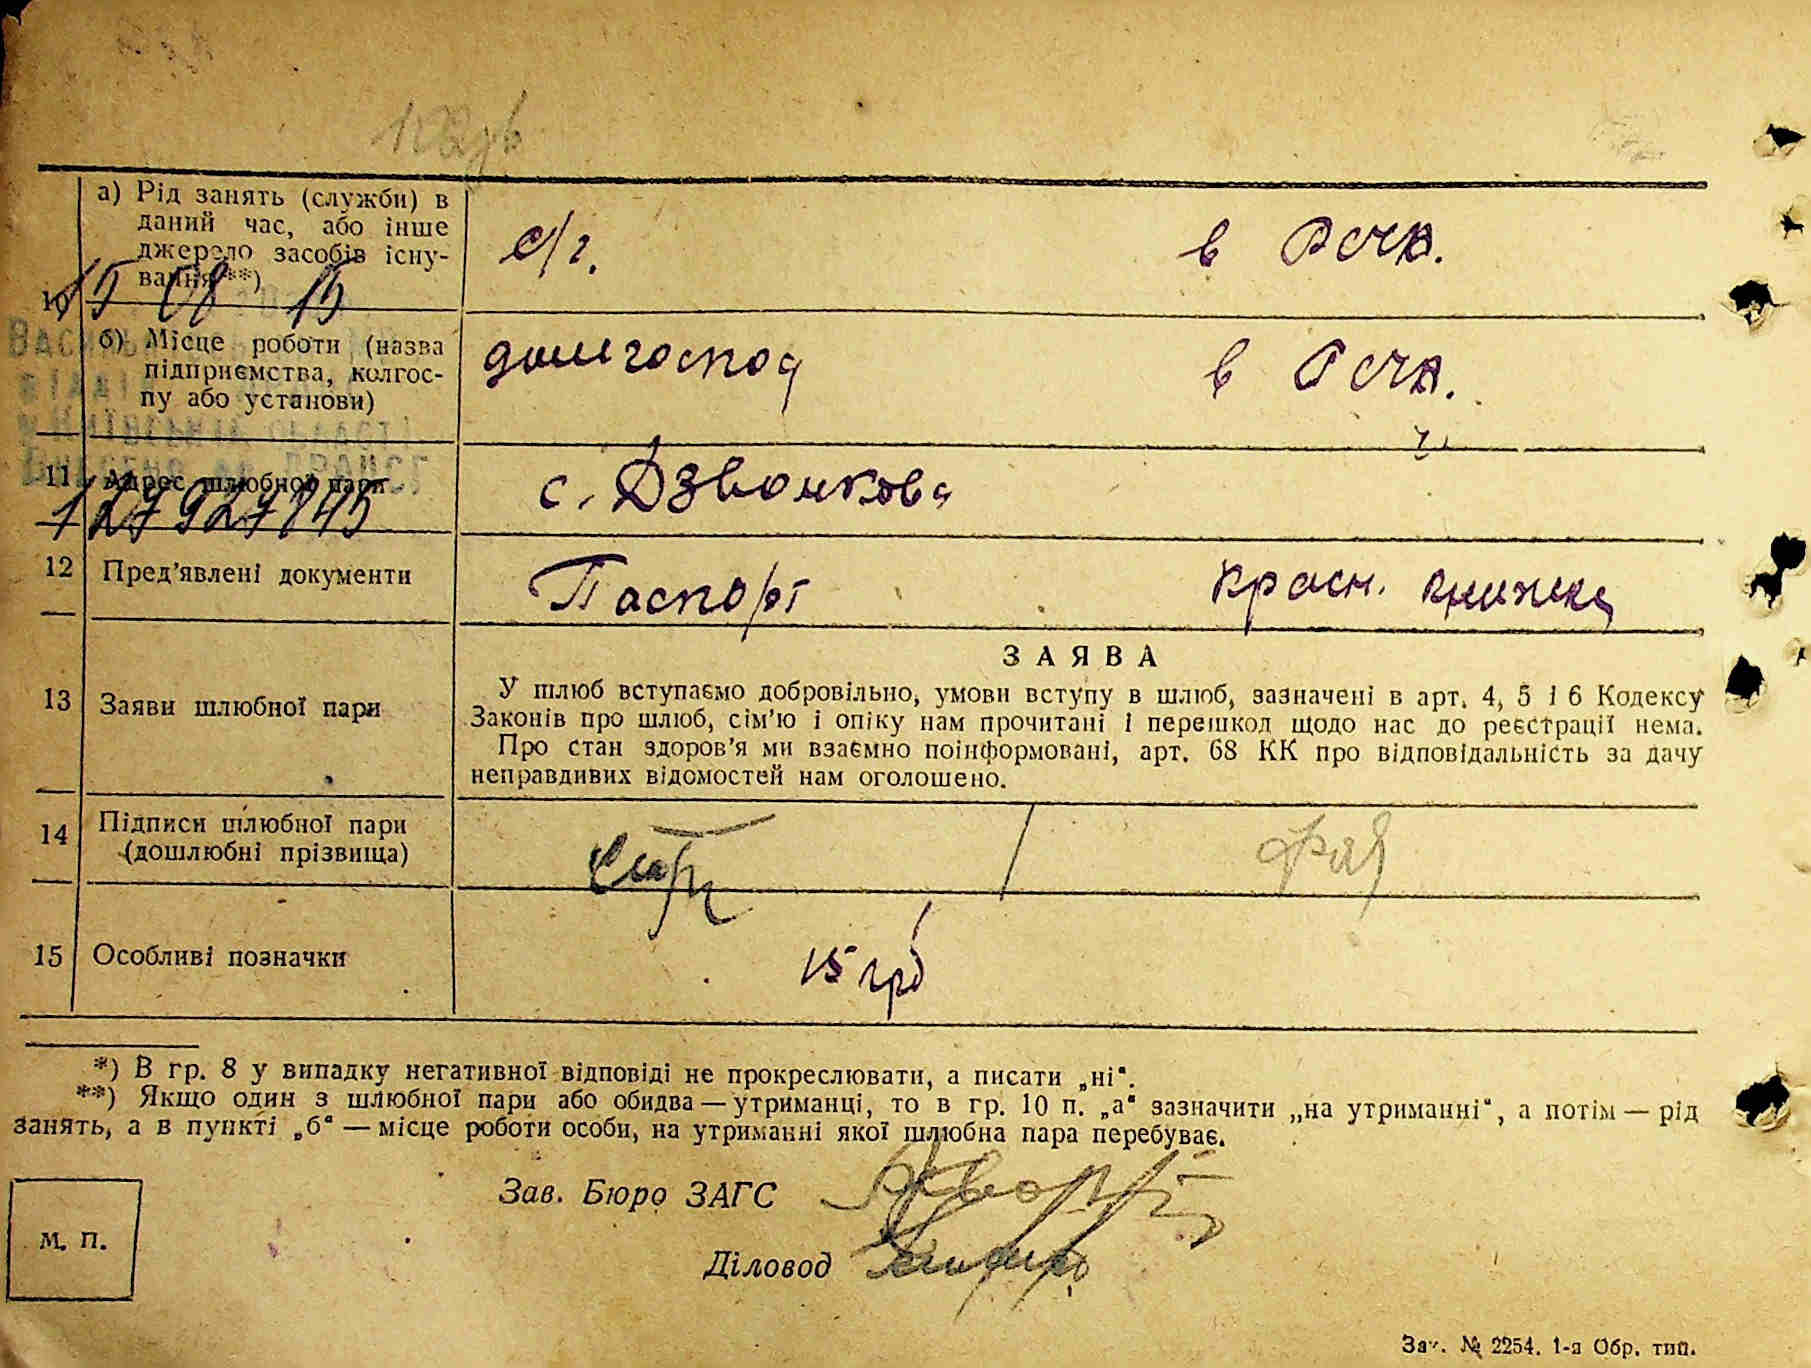 а) Рід занять (служби) в
даний час, або інше
джерело засобів існу-
вання**)
с/г.
в РСЧА.
10
15 08 15
б) Місце роботи (назва
підприємства, колгос-
пу або установи)
домгоспод
в РСЧА.
11
Адрес шлюбної пари
с. Дзвонкова
12
Пред'явлені документи
Паспорт
Красн. книжка
13
Заяви шлюбної пари
ЗАЯВА
У шлюб вступаємо добровільно, умови вступу в шлюб, зазначені в арт. 4, 5 і 6 Кодексу
Законів про шлюб, сім'ю і опіку нам прочитані і перешкод щодо нас до реєстрації нема.
Про стан здоров'я ми взаємно поінформовані, арт. 68 КК про відповідальність за дачу
неправдивих відомостей нам оголошено.
14
Підписи шлюбної пари
(дошлюбні прізвища)
15
Особливі позначки
15 крб
*) В гр. 8 у випадку негативної відповіді не прокреслювати, а писати „ні“.
**) Якщо один з шлюбної пари або обидва — утриманці, то в гр. 10 п. „а“ зазначити „на утриманні“, а потім — рід
занять, а в пункті „б“ — місце роботи особи, на утриманні якої шлюбна пара перебуває.
Зав. Бюро ЗАГС
Діловод
М. П.
Зак. № 2254. 1-а Обр. тип.